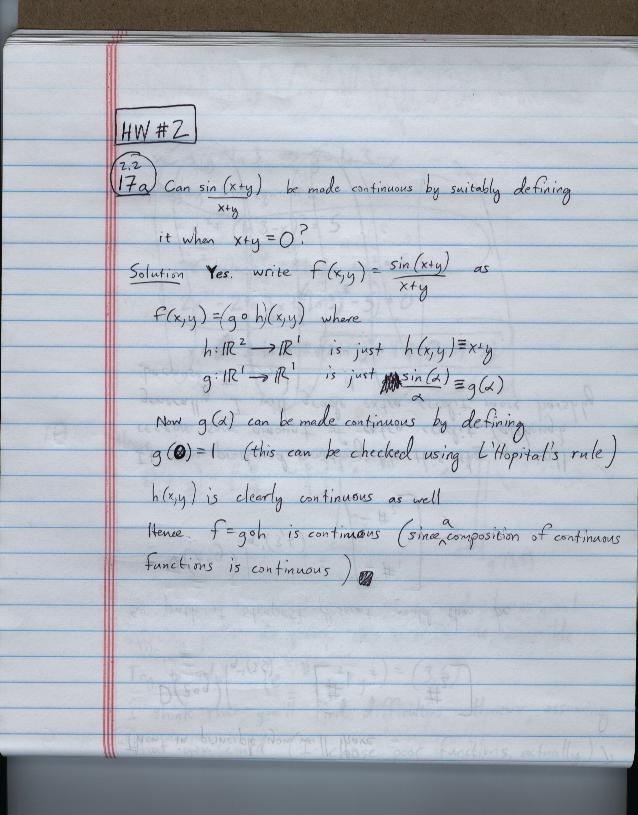 HW #2
2.2
17a Can sin(x+y)/x+y be made continuous by suitably defining
it when x+y = 0?
Solution Yes. write f(x,y) = sin(x+y)/x+y as
f(x,y) = (g∘h)(x,y) where
h: ℝ² → ℝ¹ is just h(x,y) ≡ x+y
g: ℝ¹ → ℝ¹ is just sin(α)/α ≡ g(α)
Now g(α) can be made continuous by defining
g(0) = 1 (this can be checked using L'Hopital's rule)
h(x,y) is clearly continuous as well
Hence f = g∘h is continuous (since a composition of continuous
functions is continuous)